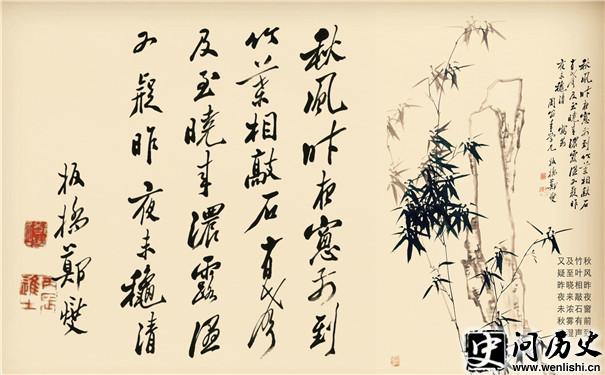 秋風昨夜窓前到
竹葉相敲石有声
及至曉来濃露湿
又疑昨夜未秋清
板橋鄭燮
秋風昨夜窓前到竹葉相敲石
有声及至曉来濃露湿又疑昨
夜未秋清
板橋鄭燮
秋风昨夜窗前到
竹叶相敲石有声
及至晓来浓雾湿
又疑昨夜未秋
史 问历史
www.wenlishi.cn